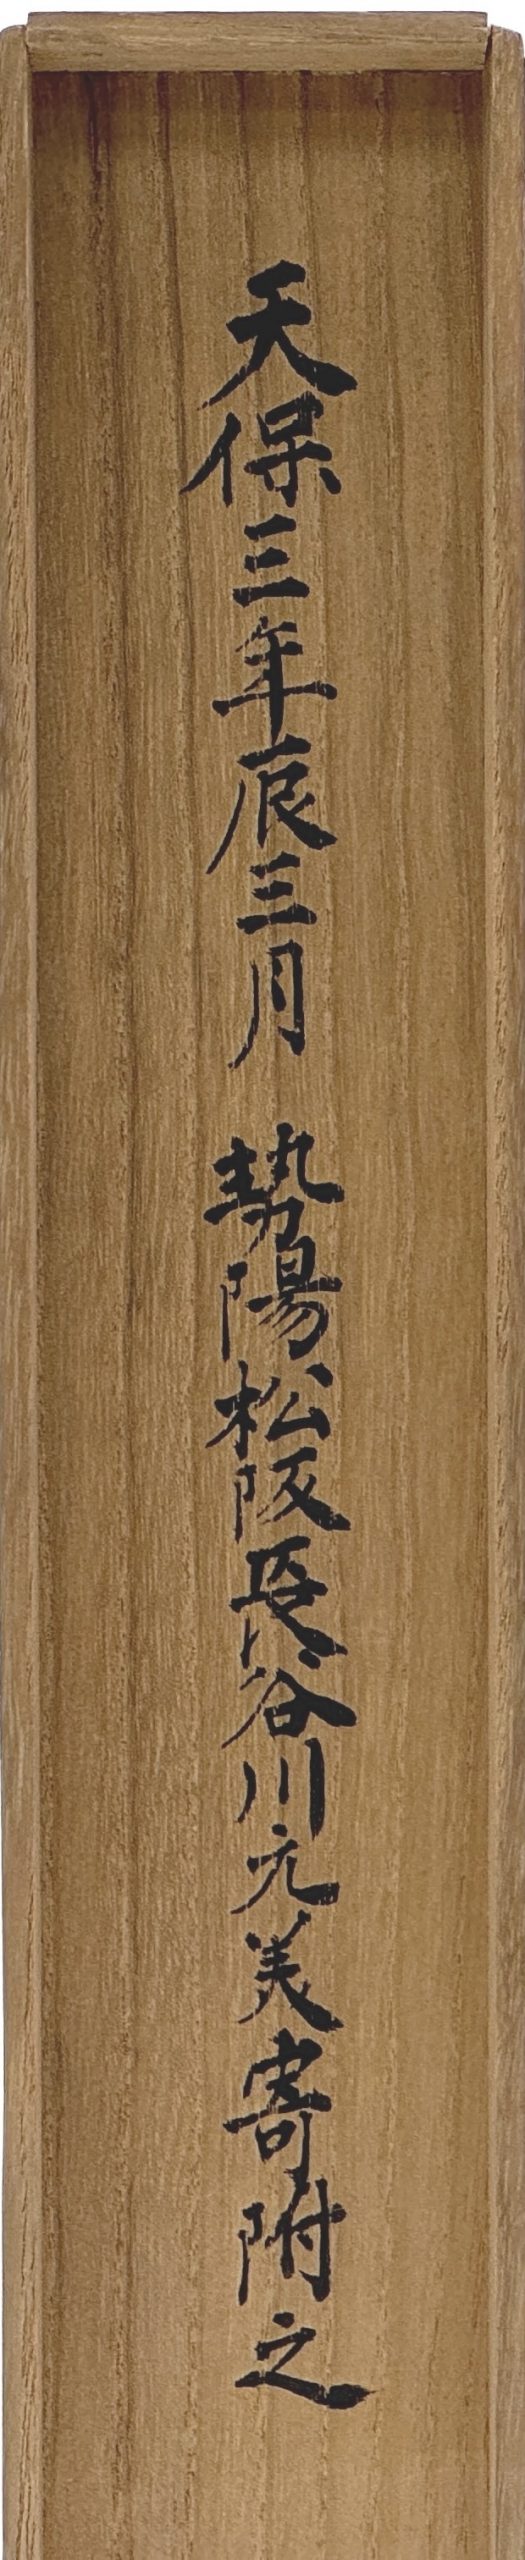 天保三年辰三月　勢陽松阪長谷川元美寄附之